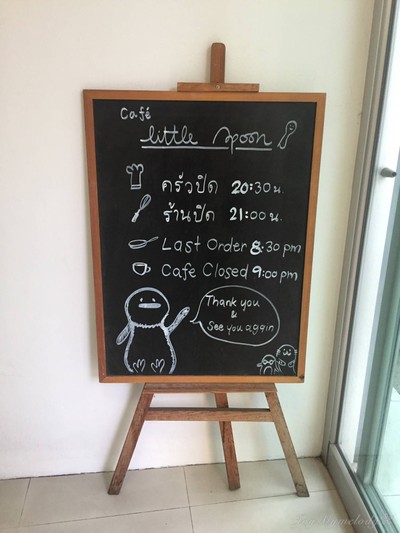 Café
little spoon
ครัวปิด 20:30 น.
ร้านปิด 21:00 น.
Last Order 8:30 pm
Cafe Closed 9:00 pm
Thank you
&
See you again